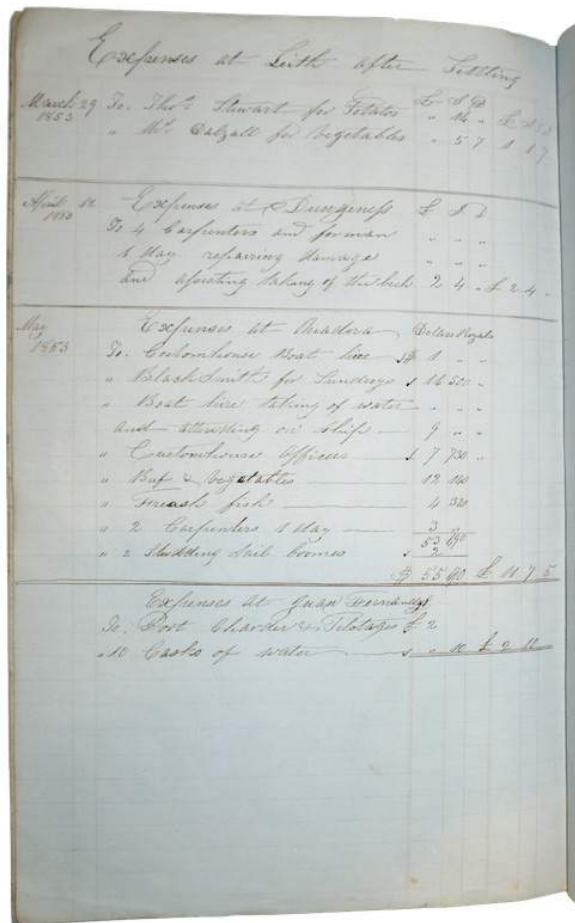 Expenses at Leith after Settling
£ S D
March 29 To. Thos Stewart for Potatos " 16 " £ S D
1853 " Mr. Dalzall for vegetables " 5 7 1 1 7
April 12 Expenses at Dungeness £ S D
1853 To 4 Carpenters and forman " " "
1 day repairing damage " " "
and assisting taking of the 2 4 " £ 2 4 "
May Expenses at Madera Dollars Royals
1853 To. Customhouse Boat hire $ 1 " "
" BlackSmith for Sundreys $ 16 500 "
" Boat hire taking of water " " "
and attending on Ship 9 " "
" Customhouse Officers $ 7 730 "
" Buf & vegetables 12 140
" Freash fish 4 320
" 2 Carpenters 1 day 3
53 690
" 2 Studding Sail boomes $ 2
$ 55 690 £ 11 7 5
Expenses at Juan Fernandes
To. Port Charder & Pilotages £ 2
" 10 Casks of water $ " 10 £ 2 10